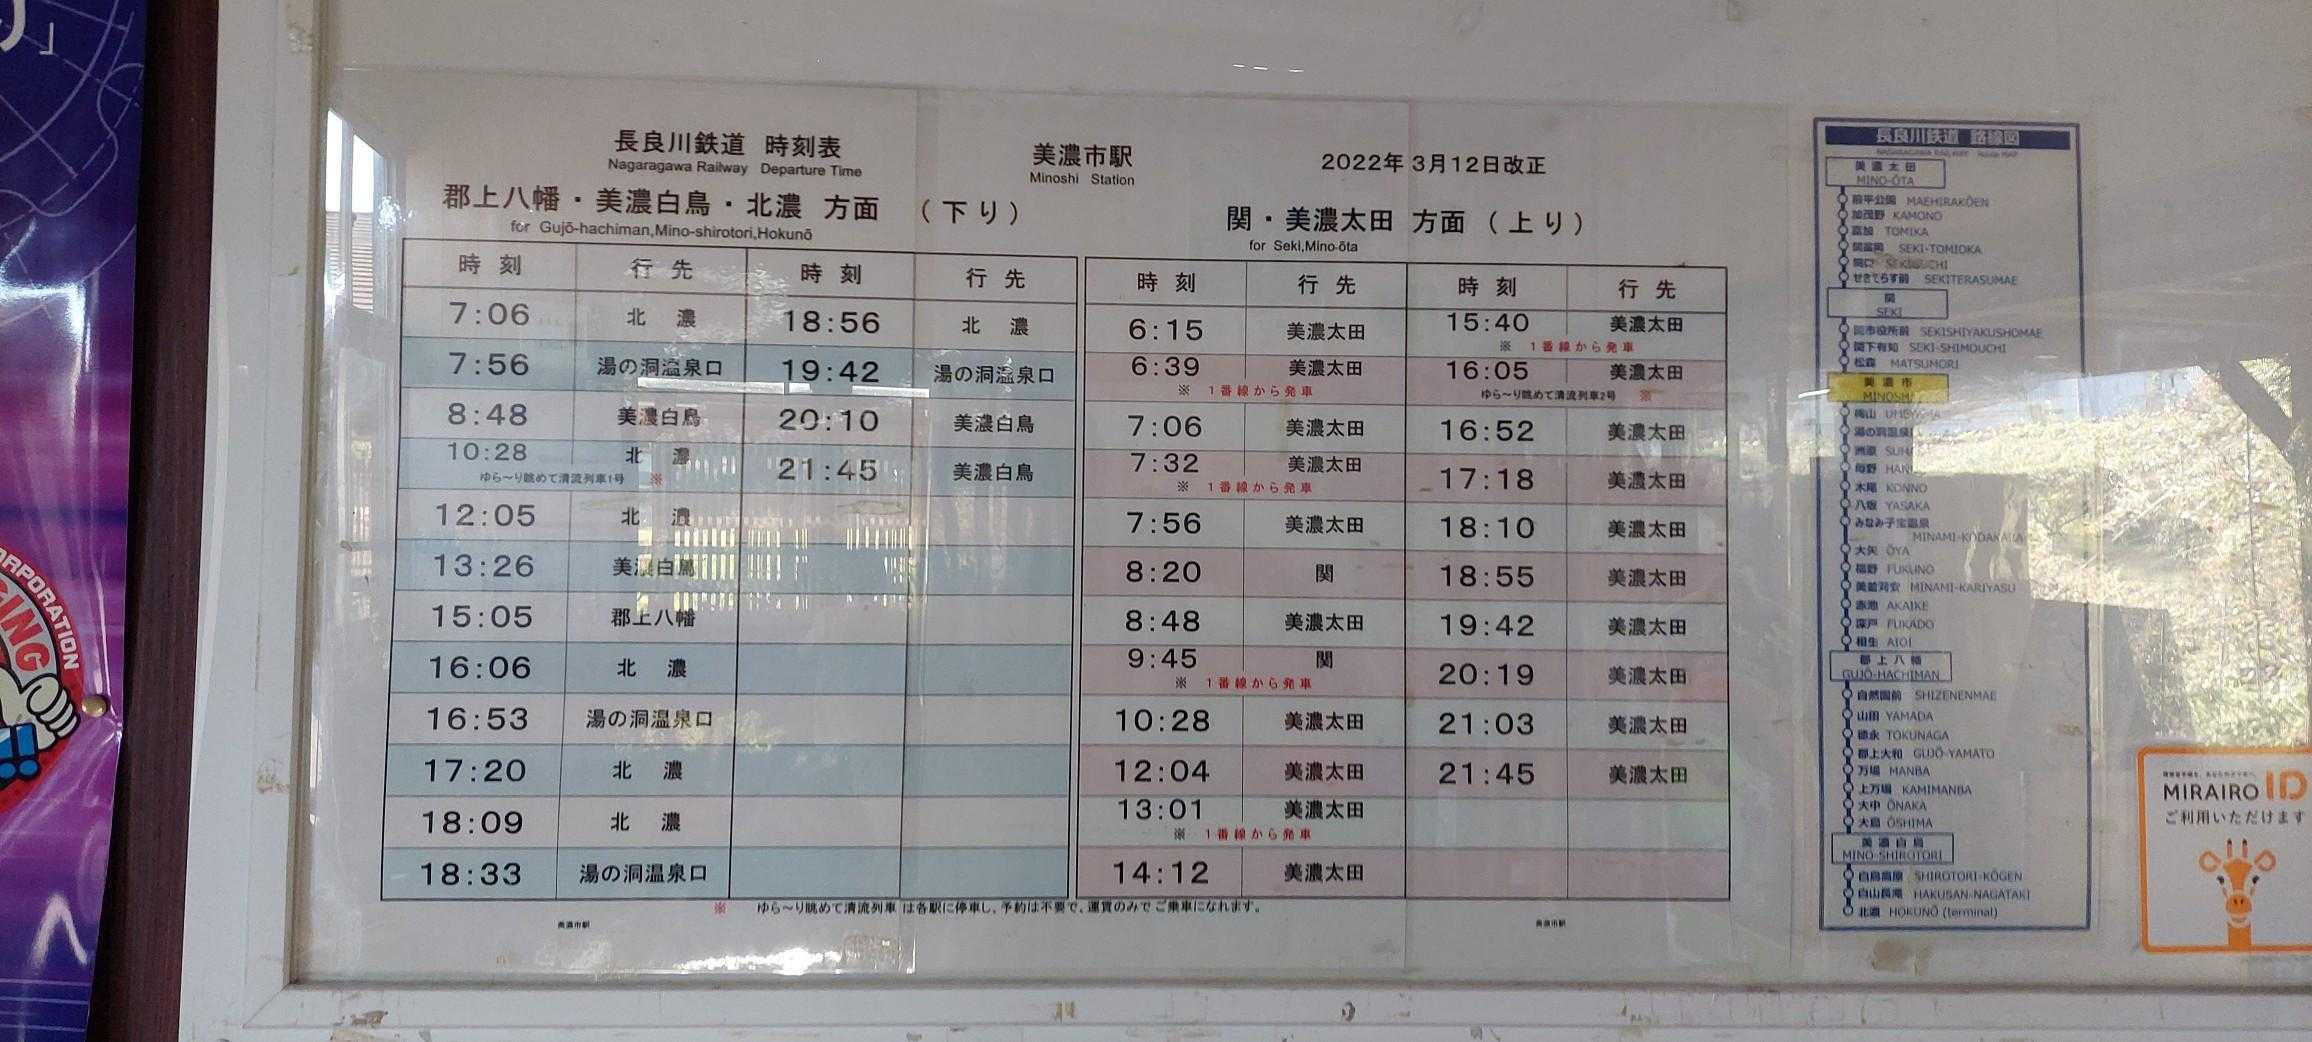 り」
ORPORATION
長良川鉄道 時刻表
Nagaragawa Railway Departure Time
美濃市駅
Minoshi Station
2022年 3月12日改正
郡上八幡・美濃白鳥・北濃 方面 (下り)
for Gujō-hachiman,Mino-shirotori,Hokunō
時刻 行先 時刻 行先
7:06 北濃 18:56 北濃
7:56 湯の洞温泉口 19:42 湯の洞温泉口
8:48 美濃白鳥 20:10 美濃白鳥
10:28 北濃 21:45 美濃白鳥
ゆら〜り眺めて清流列車1号 ※
12:05 北濃
13:26 美濃白鳥
15:05 郡上八幡
16:06 北濃
16:53 湯の洞温泉口
17:20 北濃
18:09 北濃
18:33 湯の洞温泉口
関・美濃太田 方面 (上り)
for Seki,Mino-ōta
時刻 行先 時刻 行先
6:15 美濃太田 15:40 美濃太田
※ 1番線から発車
6:39 美濃太田 16:05 美濃太田
※ 1番線から発車 ゆら〜り眺めて清流列車2号 ※
7:06 美濃太田 16:52 美濃太田
7:32 美濃太田 17:18 美濃太田
※ 1番線から発車
7:56 美濃太田 18:10 美濃太田
8:20 関 18:55 美濃太田
8:48 美濃太田 19:42 美濃太田
9:45 関 20:19 美濃太田
※ 1番線から発車
10:28 美濃太田 21:03 美濃太田
12:04 美濃太田 21:45 美濃太田
13:01 美濃太田
※ 1番線から発車
14:12 美濃太田
※ ゆら〜り眺めて清流列車 は各駅に停車し、予約は不要で、運賃のみでご乗車になれます。
美濃市駅
美濃市駅
長良川鉄道 路線図
NAGARAGAWA RAILWAY ROUTE MAP
美濃太田
MINO-ŌTA
前平公園 MAEHIRAKŌEN
加茂野 KAMONO
富加 TOMIKA
関富岡 SEKI-TOMIOKA
関口 SEKIGUCHI
せきてらす前 SEKITERASUMAE
関
SEKI
関市役所前 SEKISHIYAKUSHOMAE
関下有知 SEKI-SHIMOUCHI
松森 MATSUMORI
美濃市
MINOSHI
梅山 UMEYAMA
湯の洞温泉
洲原 SUHA
母野 HAN
木尾 KONNO
八坂 YASAKA
みなみ子宝温泉
MINAMI-KODAKARA
大矢 ŌYA
福野 FUKUNO
美並苅安 MINAMI-KARIYASU
赤池 AKAIKE
深戸 FUKADO
相生 AIOI
郡上八幡
GUJŌ-HACHIMAN
自然園前 SHIZENENMAE
山田 YAMADA
徳永 TOKUNAGA
郡上大和 GUJŌ-YAMATO
万場 MANBA
上万場 KAMIMANBA
大中 ŌNAKA
大島 ŌSHIMA
美濃白鳥
MINO-SHIROTORI
白鳥高原 SHIROTORI-KŌGEN
白山長滝 HAKUSAN-NAGATAKI
北濃 HOKUNŌ (terminal)
MIRAIRO ID
ご利用いただけます